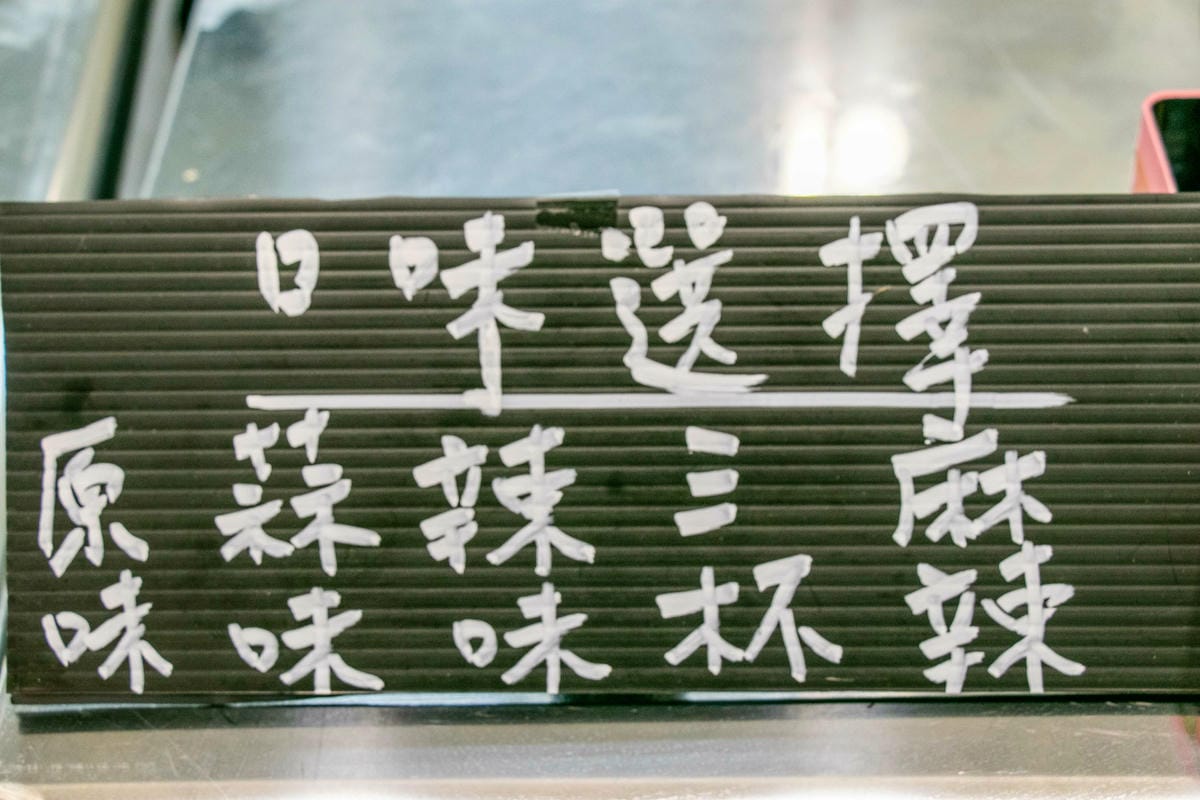 口味選擇
原味
蒜味
辣味
三杯
麻辣